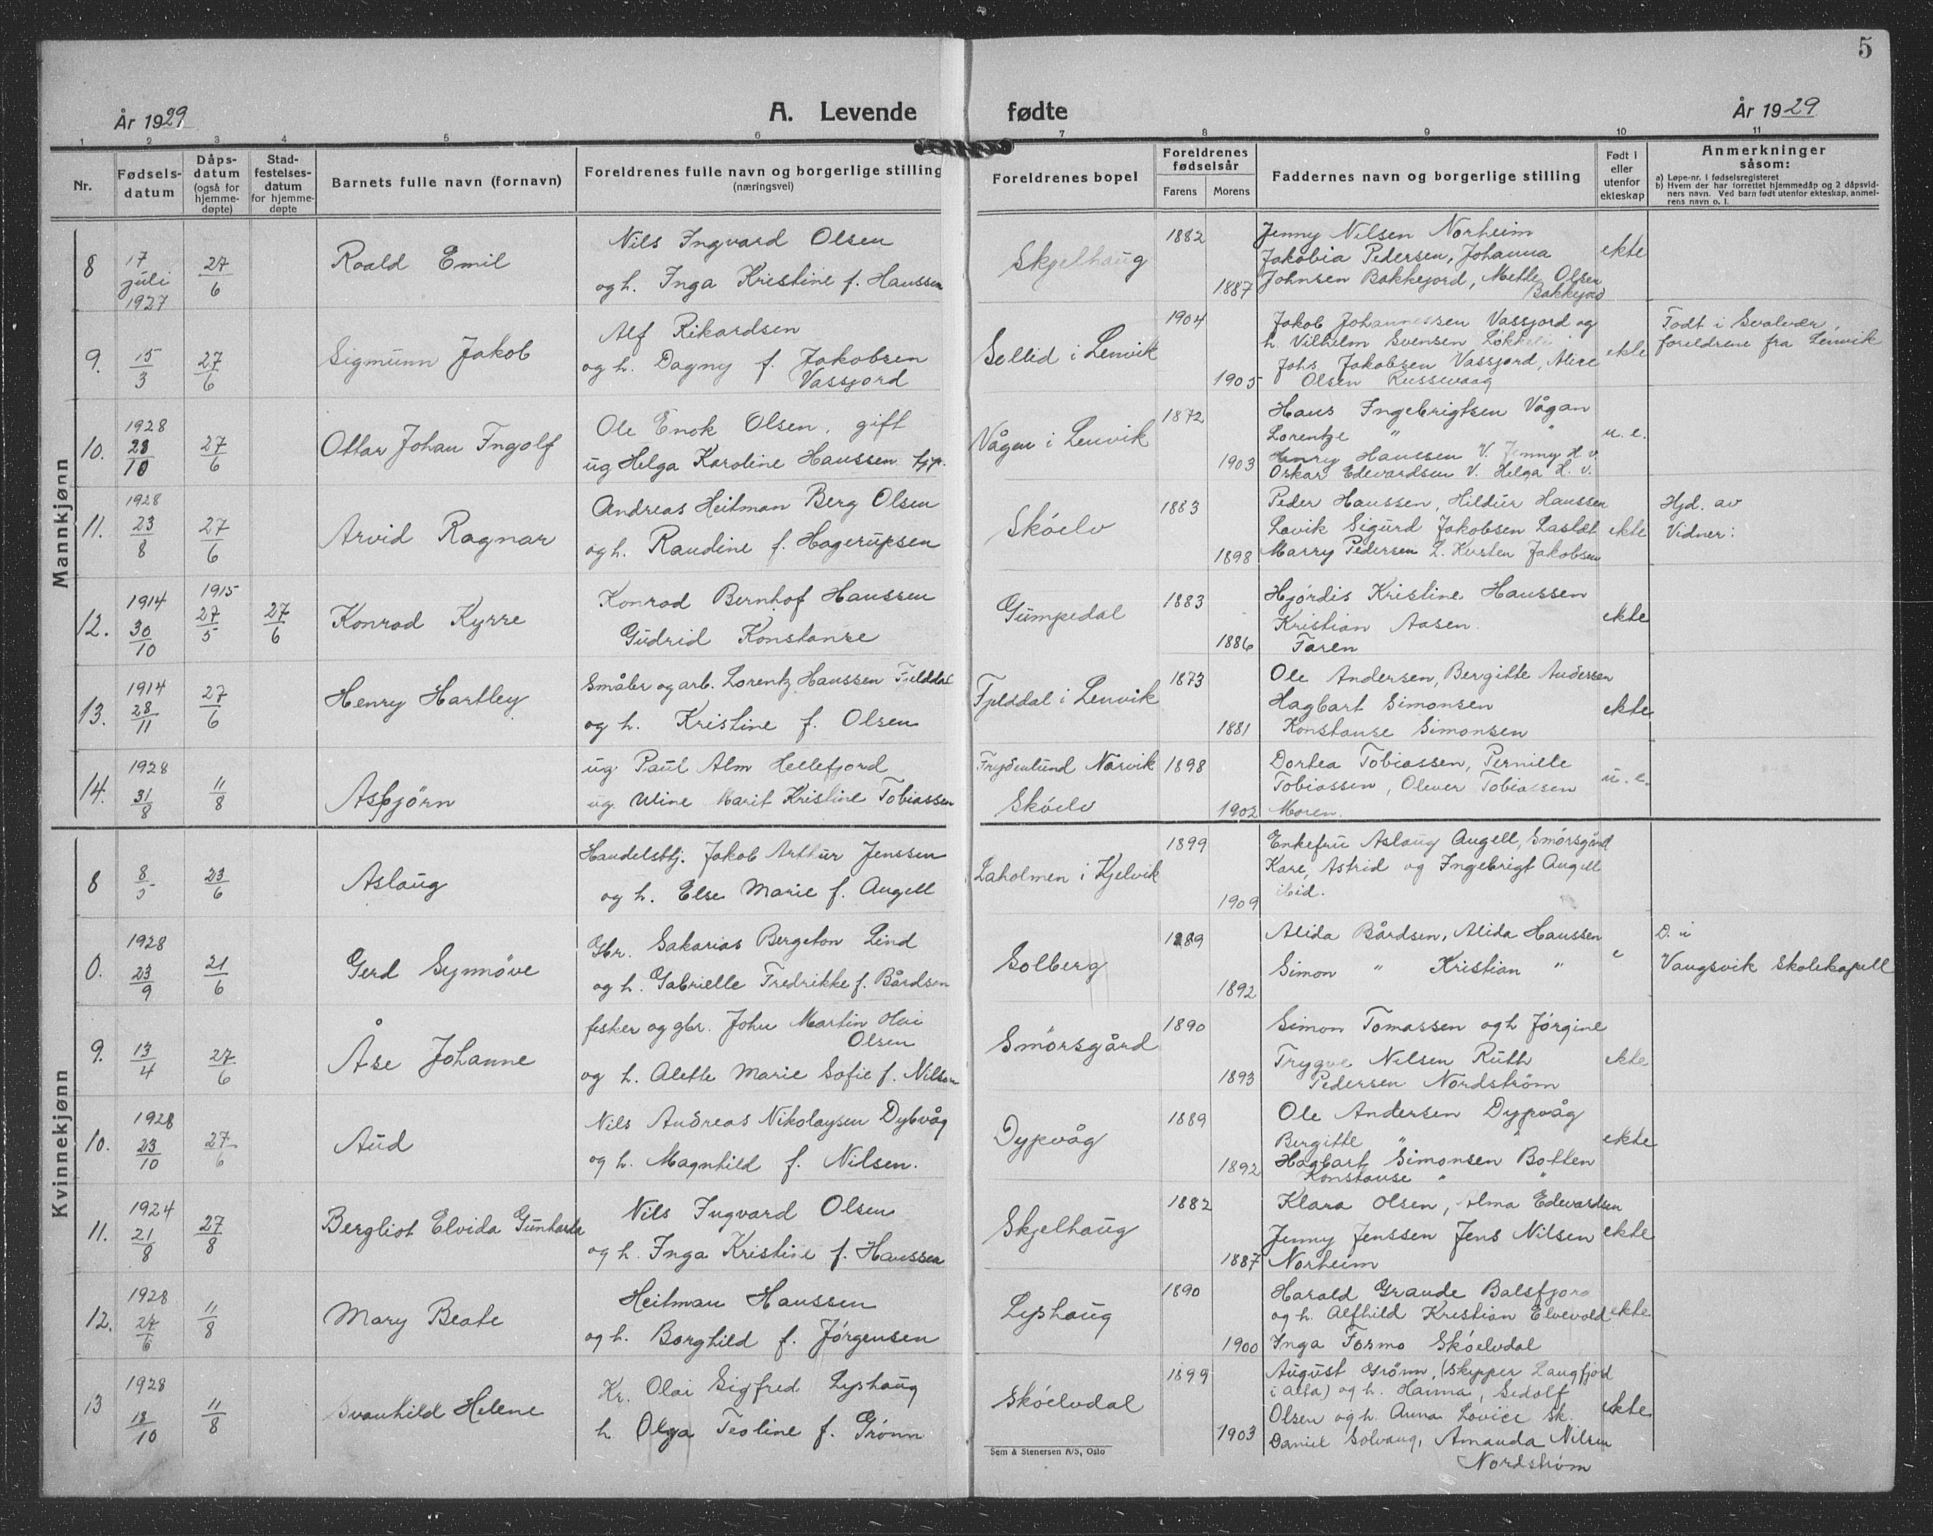 5
År 1929
A. Levende fødte
År 1929
1 2 3 4 5 6 7 8 9 10 11
Nr.
Fødsels-
datum
Dåps-
datum
(også for
hjemme-
døpte)
Stad-
festelses-
datum
for hjemme-
døpte
Barnets fulle navn (fornavn)
Foreldrenes fulle navn og borgerlige stilling
(næringsvei)
Foreldrenes bopel
Foreldrenes
fødselsår
Farens Morens
Faddernes navn og borgerlige stilling
Født i
eller
utenfor
ekteskap
Anmerkninger
såsom:
a) Løpe-nr. i fødselsregisteret
b) Hvem der har forrettet hjemmedåp og 2 dåpsvid-
ners navn. Ved barn født utenfor ekteskap, anmel-
rens navn o. l.
Mannkjønn
8 17 juli 1927 27/6 Roald Emil
Nils Ingvard Olsen
og h. Inga Kristine f. Hanssen
Skjelhaug 1882 1887
Jenny Nilsen Norheim
Jakobia Pedersen, Johanna
Johnsen Bakkejord, Mette Olsen
Bakkejord
ekte
9. 15/3 27/6 Sigmunn Jakob
Alf Rikardsen
og h. Dagny f. Jakobsen
Vassjord
Sellid i Lenvik 1904 1905
Jakob Johannessen Vassjord og
h. Vilhelm Svensen
Johs Jakobsen Vassjord,
Olsen Russevaag
ekte
Født i Svolvær,
foreldrene fra Lenvik
10. 1928 23/10 27/6 Ottar Johan Ingolf
Ole Enok Olsen, gift
ug Helga Karoline Hanssen
Vågan i Lenvik 1872 1903
Hans Ingebrigtsen Vågan
Lorentze " "
Henry Hanssen V. Jenny H. v.
Oskar Edevardsen V. Helga H. v.
u. e.
11. 1928 23/8 27/6 Arvid Ragnar
Andreas Heitman Berg Olsen
og h. Raudine f. Hagerupsen
Skóelv 1883 1898
Peder Hanssen, Hildur Hanssen
Lavik Sigurd Jakobsen
Marry Pedersen L. Jakobsen
ekte
Hjd. av
Vidner:
12. 1914 30/10 1915 27/5 27/6 Konrad Kyrre
Konrad Bernhof Hanssen
Gudrid Konstanse
Gumpedal 1883 1886
Hjórdis Kristine Hanssen
Kristian Aasen.
Faren
ekte
13. 1914 28/11 27/6 Henry Hartley
Småbr og arb. Lorentz Hanssen Fjelddal
og h. Kristine f. Olsen
Fjelddal i Lenvik 1873 1881
Ole Andersen, Bergitte Andersen
Hagbart Simonsen
Konstanse Simonsen
ekte
14. 1928 31/8 11/8 Asbjórn
ug Paul Alm Hellefjord
ug Uline Marit Kristine Tobiassen
Frydenlund Narvik
Skóelv 1898 1902
Dortea Tobiassen, Pernille
Tobiassen, Oliver Tobiassen
Moren.
u. e.
Kvinnekjønn
8 8/5 23/6 Aslaug
Handelsbtj. Jakob Arthur Jenssen
og h. Else Marie f. Augell
Laholmen i Kjelvik 1899 1909
Enkefru Aslaug Augell, Smórsgård
Kare, Astrid og Ingebrigt Augell
ibid.
0. 1928 23/9 21/6 Gerd Synnóve
Gbr. Sakarias Bergeton Lind
og h. Gabrielle Fredrikke f. Bårdsen
Solberg 1889 1892
Alida Bårdsen, Alida Hanssen
Simon " Kristian "
e
D. i
Vangsvik Skolekapell
9. 13/4 27/6 Åse Johanne
fisker og gbr. John Martin
Olsen
og h. Alette Marie Sofie f. Nilsen
Smórsgård 1890 1893
Simon Tomassen og h Jórgine
Trygve Nilsen Ruth
Pedersen Nordstrøm
ekte
10. 1928 23/10 27/6 Aud
Nils Andreas Nikolaysen Dybvåg
og h. Magnhild f. Nilsen.
Dypvåg 1889 1892
Ole Andersen Dypvåg
Bergitte " "
Hagbart Simonsen Botten
Konstanse " "
ekte
11. 1924 21/8 27/8 Bergliot Elvida Gunharda
Nils Ingvard Olsen
og h. Inga Kristine f. Hanssen
Skjelhaug 1882 1887
Klara Olsen, Alma Edevardsen
Jenny Jenssen Jens Nilsen
Norheim
ekte
12. 1928 27/6 11/8 Mary Beate
Heitman Hanssen
og h. Borghild f. Jórgensen
Lyshaug 1890 1900
Harald Grande Balsfjord
og h. Alfhild Kristian Elvevold
Inga Fosmo Skóelvdal
ekte
13 1928 18/10 11/8 Svanhild Helene
Kr. Olai Sigfred Lyshaug
h Olga Teoline f. Grónn
Skóelvdal 1899 1903
August Grónn, (Skipper Langfjord
i Alta) og h. Hanna, Sedolf
Olsen og h. Anna Lovice Sk.
Daniel Solvang, Amanda Nilsen
Nordstrøm
ekte
Sem & Stenersen A/S, Oslo